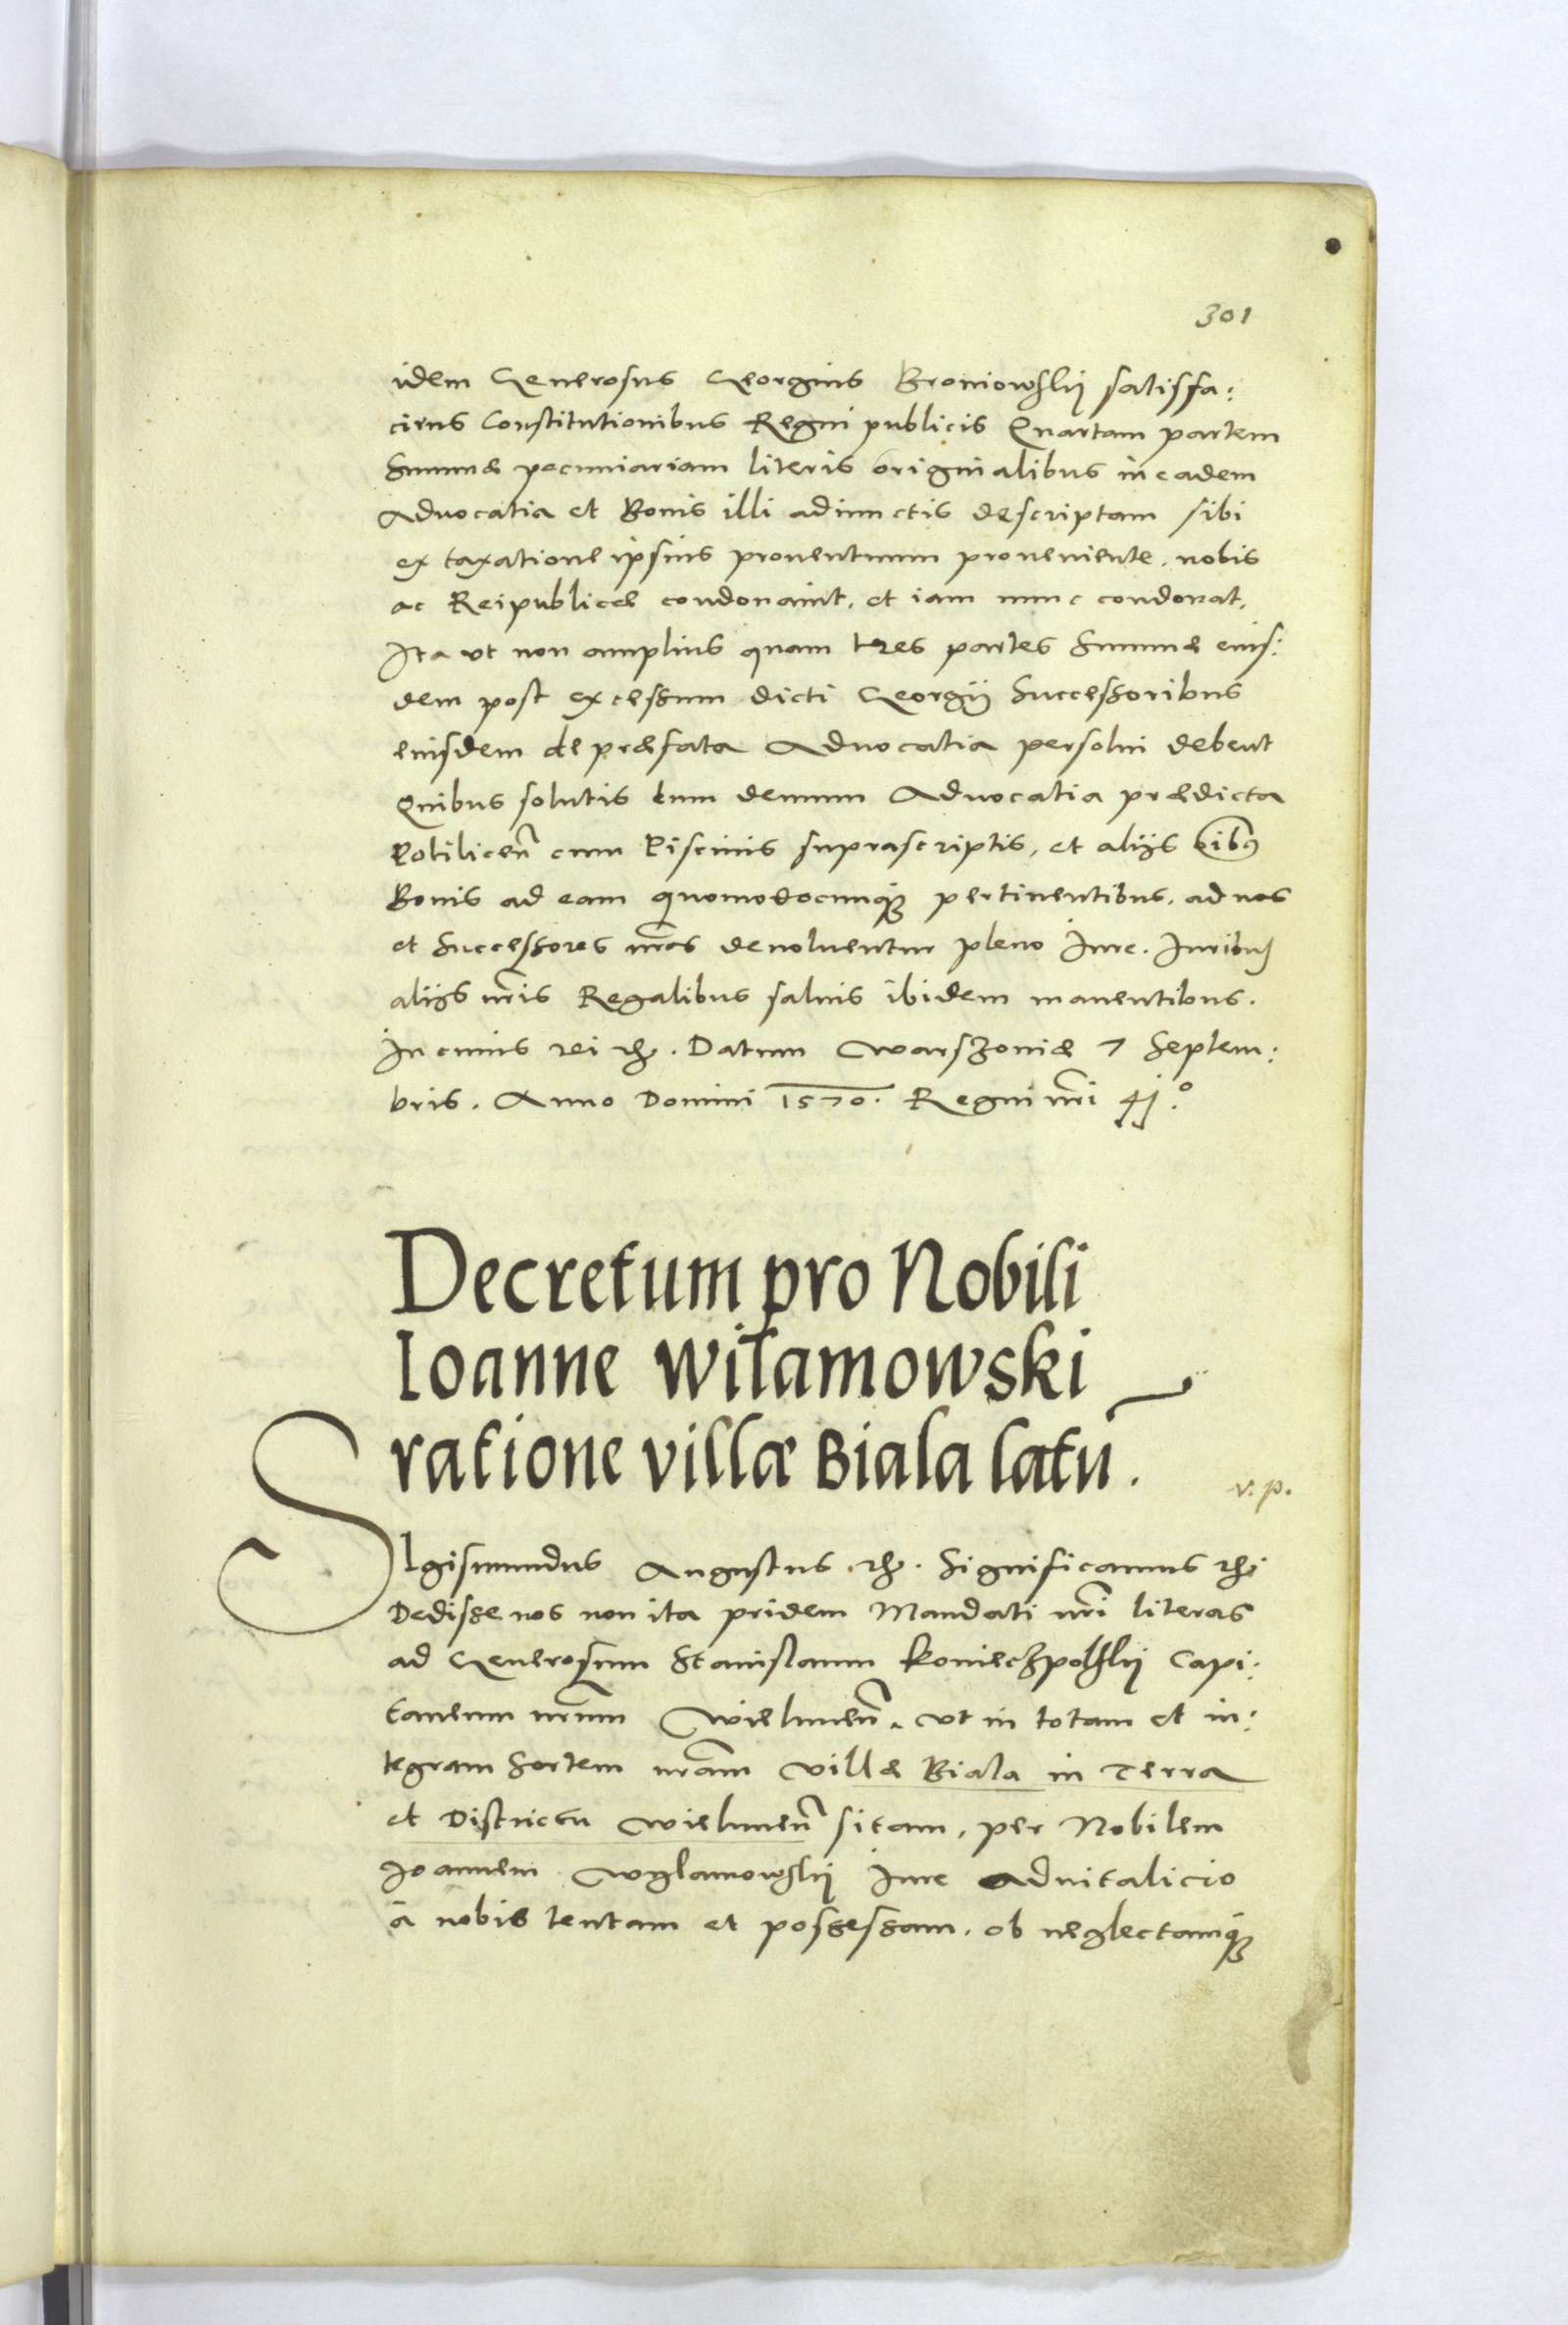 301
idem Generosus Georgius Broniowskij satisfa:
ciens Constitutionibus Regni publicis Quartam partem
Summæ pecuniariam literis originalibus in eadem
Advocatia et Bonis illi adiunctis descriptam sibi
ex taxatione ipsius proventuum proveniente. nobis
ac Reipublicæ condonavit. et iam nunc condonat.
Ita ut non amplius quam tres partes Summæ eius:
dem post excessum dicti Georgij Successoribus
eiusdem de præfata Advocatia persolvi debent
Quibus solutis tum demum Advocatia prædicta
cum Piscinis suprascriptis, et alijs oibus
Bonis ad eam quomodocunque pertinentibus. ad nos
et Successores nros devolventur pleno Iure. Iuribus
alijs nris Regalibus salvis ibidem manentibus.
In cuius rei etc. Datum Warszoviæ 7 Septem:
bris. Anno Domini 1570. Regni nri 41.º
Decretum pro Nobili
Ioanne Wilamowski
ratione villæ Biala latū.
v. p.
SIgismundus Augustus etc. Significamus etc
Dedisse nos non ita pridem Mandati nri literas
ad Generosum Stanislaum Konieczpolskij Capi:
taneum nrum Wielunen. ut in totam et in:
tegram Sortem nram Villæ Biala in Terra
et Districtu Wielunen sitam, per Nobilem
Ioannem Wylamowskij Iure Advitalicio
a nobis tentam et possessam. ob neglectamque